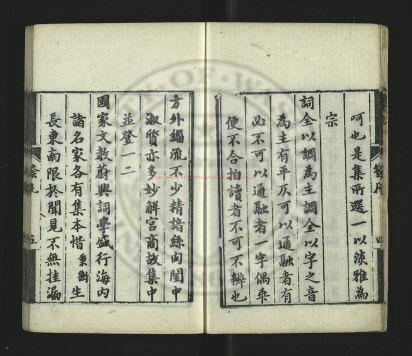 呵也是集所選一以淡雅為
宗
詞全以調為主調全以字之音
為主音有平仄可以通融者有
必不可以通融者一字偶乖
便不合拍讀者不可不辨也
方外緇流不少精諳絲肉閨中
淑質亦多妙解宮商故集中
並登一二
國家文教蔚興詞學盛行海內
諸名家各有集本惜秉衡生
長東南限於聞見不無挂漏